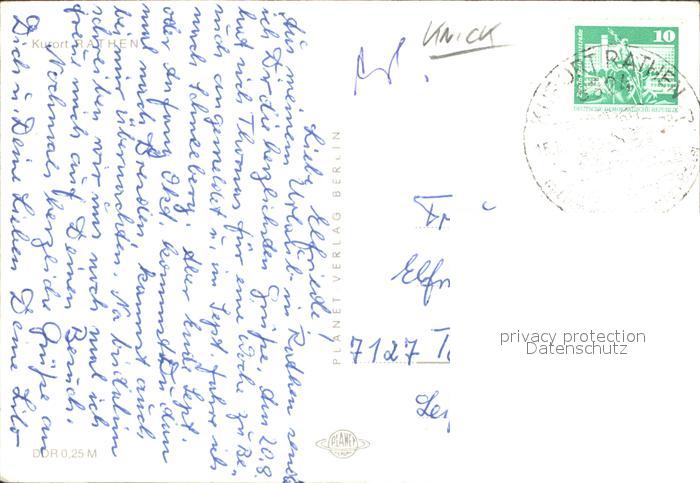 Kurort RATHEN
Liebe Elfriede!
Aus meinem Urlaub in Rathen sende
ich Dir die herzlichsten Grüße. Am 20.8.
hat sich Thomas für eine Woche zu Be-
such angemeldet u. im Sept. fahre ich
nach Schneeberg. Aber Ende Sept.
oder Anfang Okt. kommst Du dann
mal nach Dresden, kannst auch
bei mir übernachten. Na bis dahin
schreiben wir uns noch mal ich
freue mich auf Deinen Besuch.
Nochmals herzliche Grüße an
Dich u. Deine Lieben Deine Lilo
DDR 0,25 M
PLANET VERLAG BERLIN
PLANET
KNICK
10
DEUTSCHE DEMOKRATISCHE REPUBLIK
KURORT RATHEN
Fr
Elfr
7127 T
Lei
privacy protection
Datenschutz